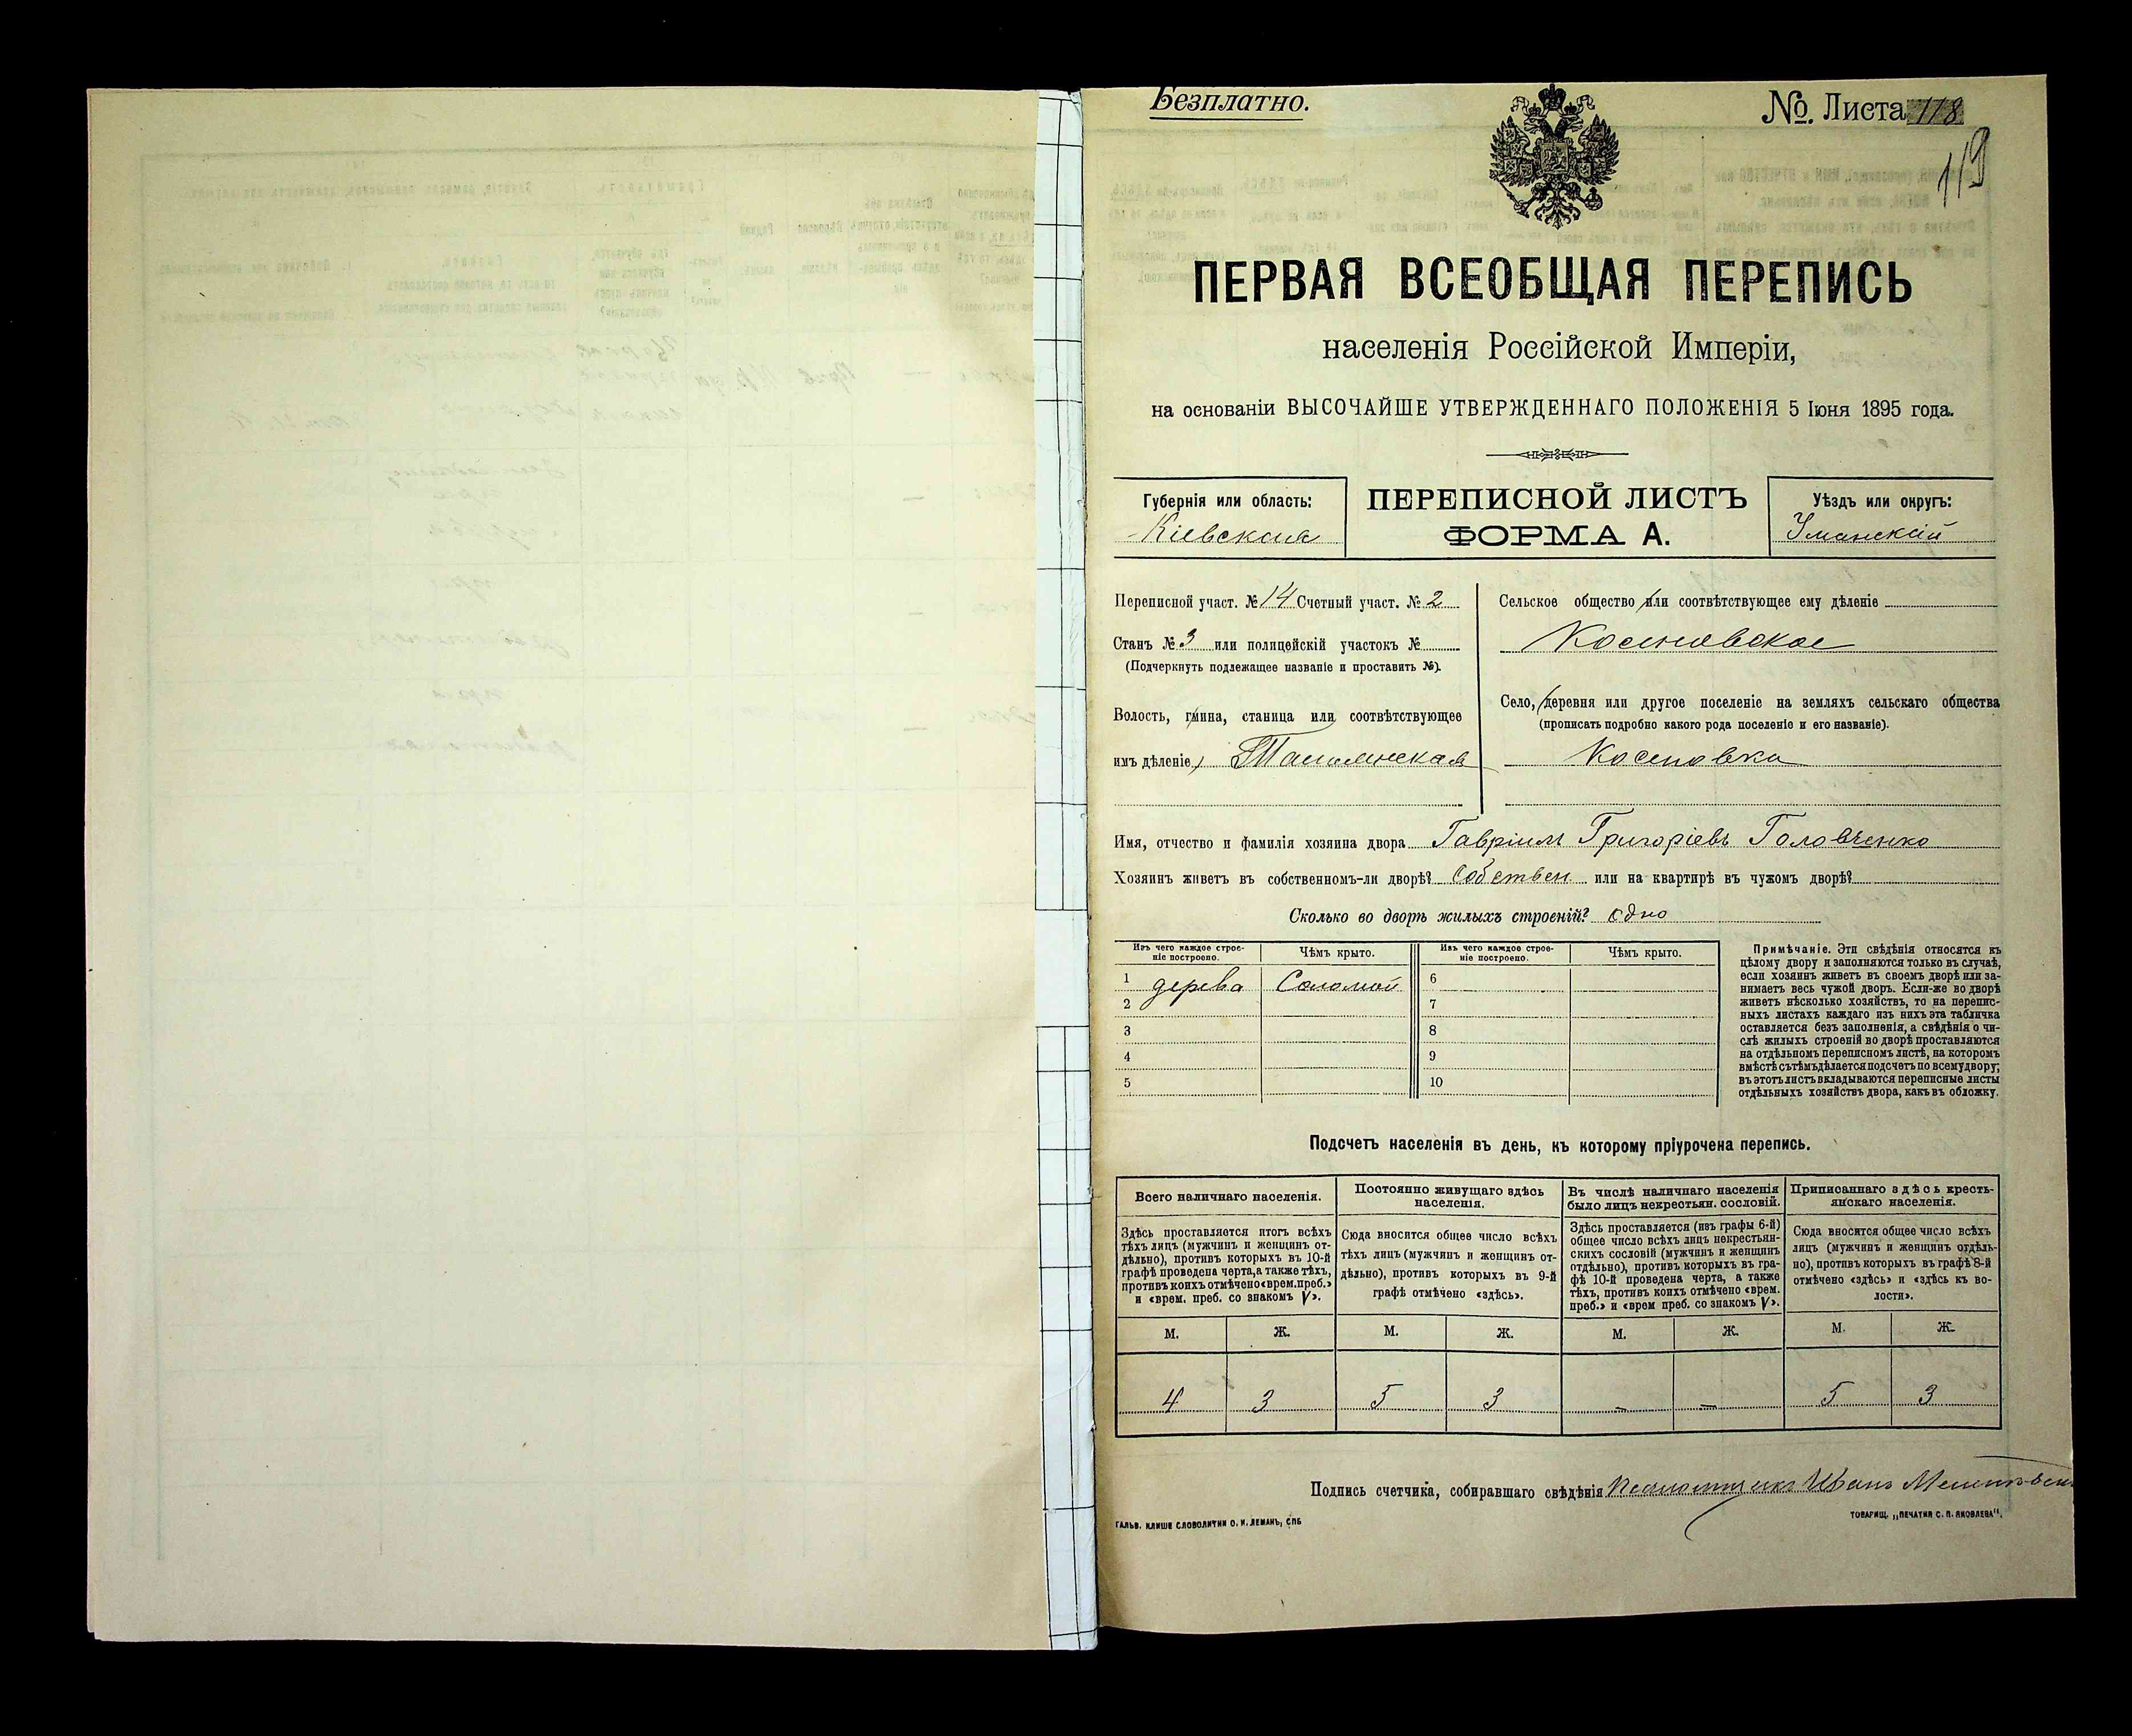 Безплатно.
№. Листа 118
119
ПЕРВАЯ ВСЕОБЩАЯ ПЕРЕПИСЬ
населенія Россійской Имперіи,
на основаніи ВЫСОЧАЙШЕ УТВЕРЖДЕННАГО ПОЛОЖЕНІЯ 5 Іюня 1895 года.
Губернія или область:
Кіевская
ПЕРЕПИСНОЙ ЛИСТЪ
ФОРМА А.
Уѣздъ или округъ:
Уманскій
Переписной участ. № 14 Счетный участ. № 2
Станъ № 3 или полицейскій участокъ №
(Подчеркнуть подлежащее названіе и проставить №).
Волость, гмина, станица или соотвѣтствующее
имъ дѣленіе,
Сельское общество или соотвѣтствующее ему дѣленіе
Косеновское
Село, деревня или другое поселеніе на земляхъ сельскаго общества
(прописать подробно какого рода поселеніе и его названіе).
Косеновка
Имя, отчество и фамилія хозяина двора Гавріилъ Григоріевъ Головченко
Хозяинъ живетъ въ собственномъ-ли дворѣ? Собствен. или на квартирѣ въ чужомъ дворѣ?
Сколько во дворѣ жилыхъ строеній? одно
Изъ чего каждое строе-
ніе построено.
Чѣмъ крыто.
Изъ чего каждое строе-
ніе построено.
Чѣмъ крыто.
1 дерева Соломой 6
2 7
3 8
4 9
5 10
Примѣчаніе. Эти свѣдѣнія относятся къ
цѣлому двору и заполняются только въ случаѣ,
если хозяинъ живетъ въ своемъ дворѣ или за-
нимаетъ весь чужой дворъ. Если-же во дворѣ
живетъ нѣсколько хозяйствъ, то на перепис-
ныхъ листахъ каждаго изъ нихъ эта табличка
оставляется безъ заполненія, а свѣдѣнія о чи-
слѣ жилыхъ строеній во дворѣ проставляются
на отдѣльномъ переписномъ листѣ, на которомъ
вмѣстѣ съ тѣмъ дѣлается подсчетъ по всему двору;
въ этотъ листъ вкладываются переписные листы
отдѣльныхъ хозяйствъ двора, какъ въ обложку.
Подсчетъ населенія въ день, къ которому пріурочена перепись.
Всего наличнаго населенія.
Здѣсь проставляется итогъ всѣхъ
тѣхъ лицъ (мужчинъ и женщинъ от-
дѣльно), противъ которыхъ въ 10-й
графѣ проведена черта, а также тѣхъ,
противъ коихъ отмѣчено «врем. преб.»
и «врем. преб. со знакомъ V».
Постоянно живущаго здѣсь
населенія.
Сюда вносится общее число всѣхъ
тѣхъ лицъ (мужчинъ и женщинъ от-
дѣльно), противъ которыхъ въ 9-й
графѣ отмѣчено «здѣсь».
Въ числѣ наличнаго населенія
было лицъ некрестьян. сословій.
Здѣсь проставляется (изъ графы 6-й)
общее число всѣхъ лицъ некрестьян-
скихъ сословій (мужчинъ и женщинъ
отдѣльно), противъ которыхъ въ гра-
фѣ 10-й проведена черта, а также
тѣхъ, противъ коихъ отмѣчено «врем.
преб.» и «врем преб. со знакомъ V».
Приписаннаго здѣсь кресть-
янскаго населенія.
Сюда вносится общее число всѣхъ
лицъ (мужчинъ и женщинъ отдѣль-
но), противъ которыхъ въ графѣ 8-й
отмѣчено «здѣсь» и «здѣсь къ во-
лости».
М. Ж. М. Ж. М. Ж. М. Ж.
4 3 5 3 – – 5 3
Подпись счетчика, собиравшаго свѣдѣнія Иванъ
ГАЛЬВ. КЛИШЕ СЛОВОЛИТНИ О. И. ЛЕМАНЪ, СПБ
ТОВАРИЩ. „ПЕЧАТНЯ С. П. ЯКОВЛЕВА".